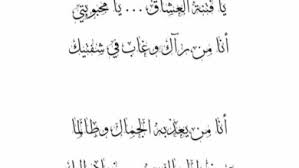 يَا فِتْنَةَ العُشَّاقِ ... يَا مَحْبُوبَتِي
أَنَا مِن رَآكِ وَغَابَ فِي شَفَتَيْكِ
أَنَا مِن يُعَذِّبهُ الجَمَالُ وَطَالَمَا